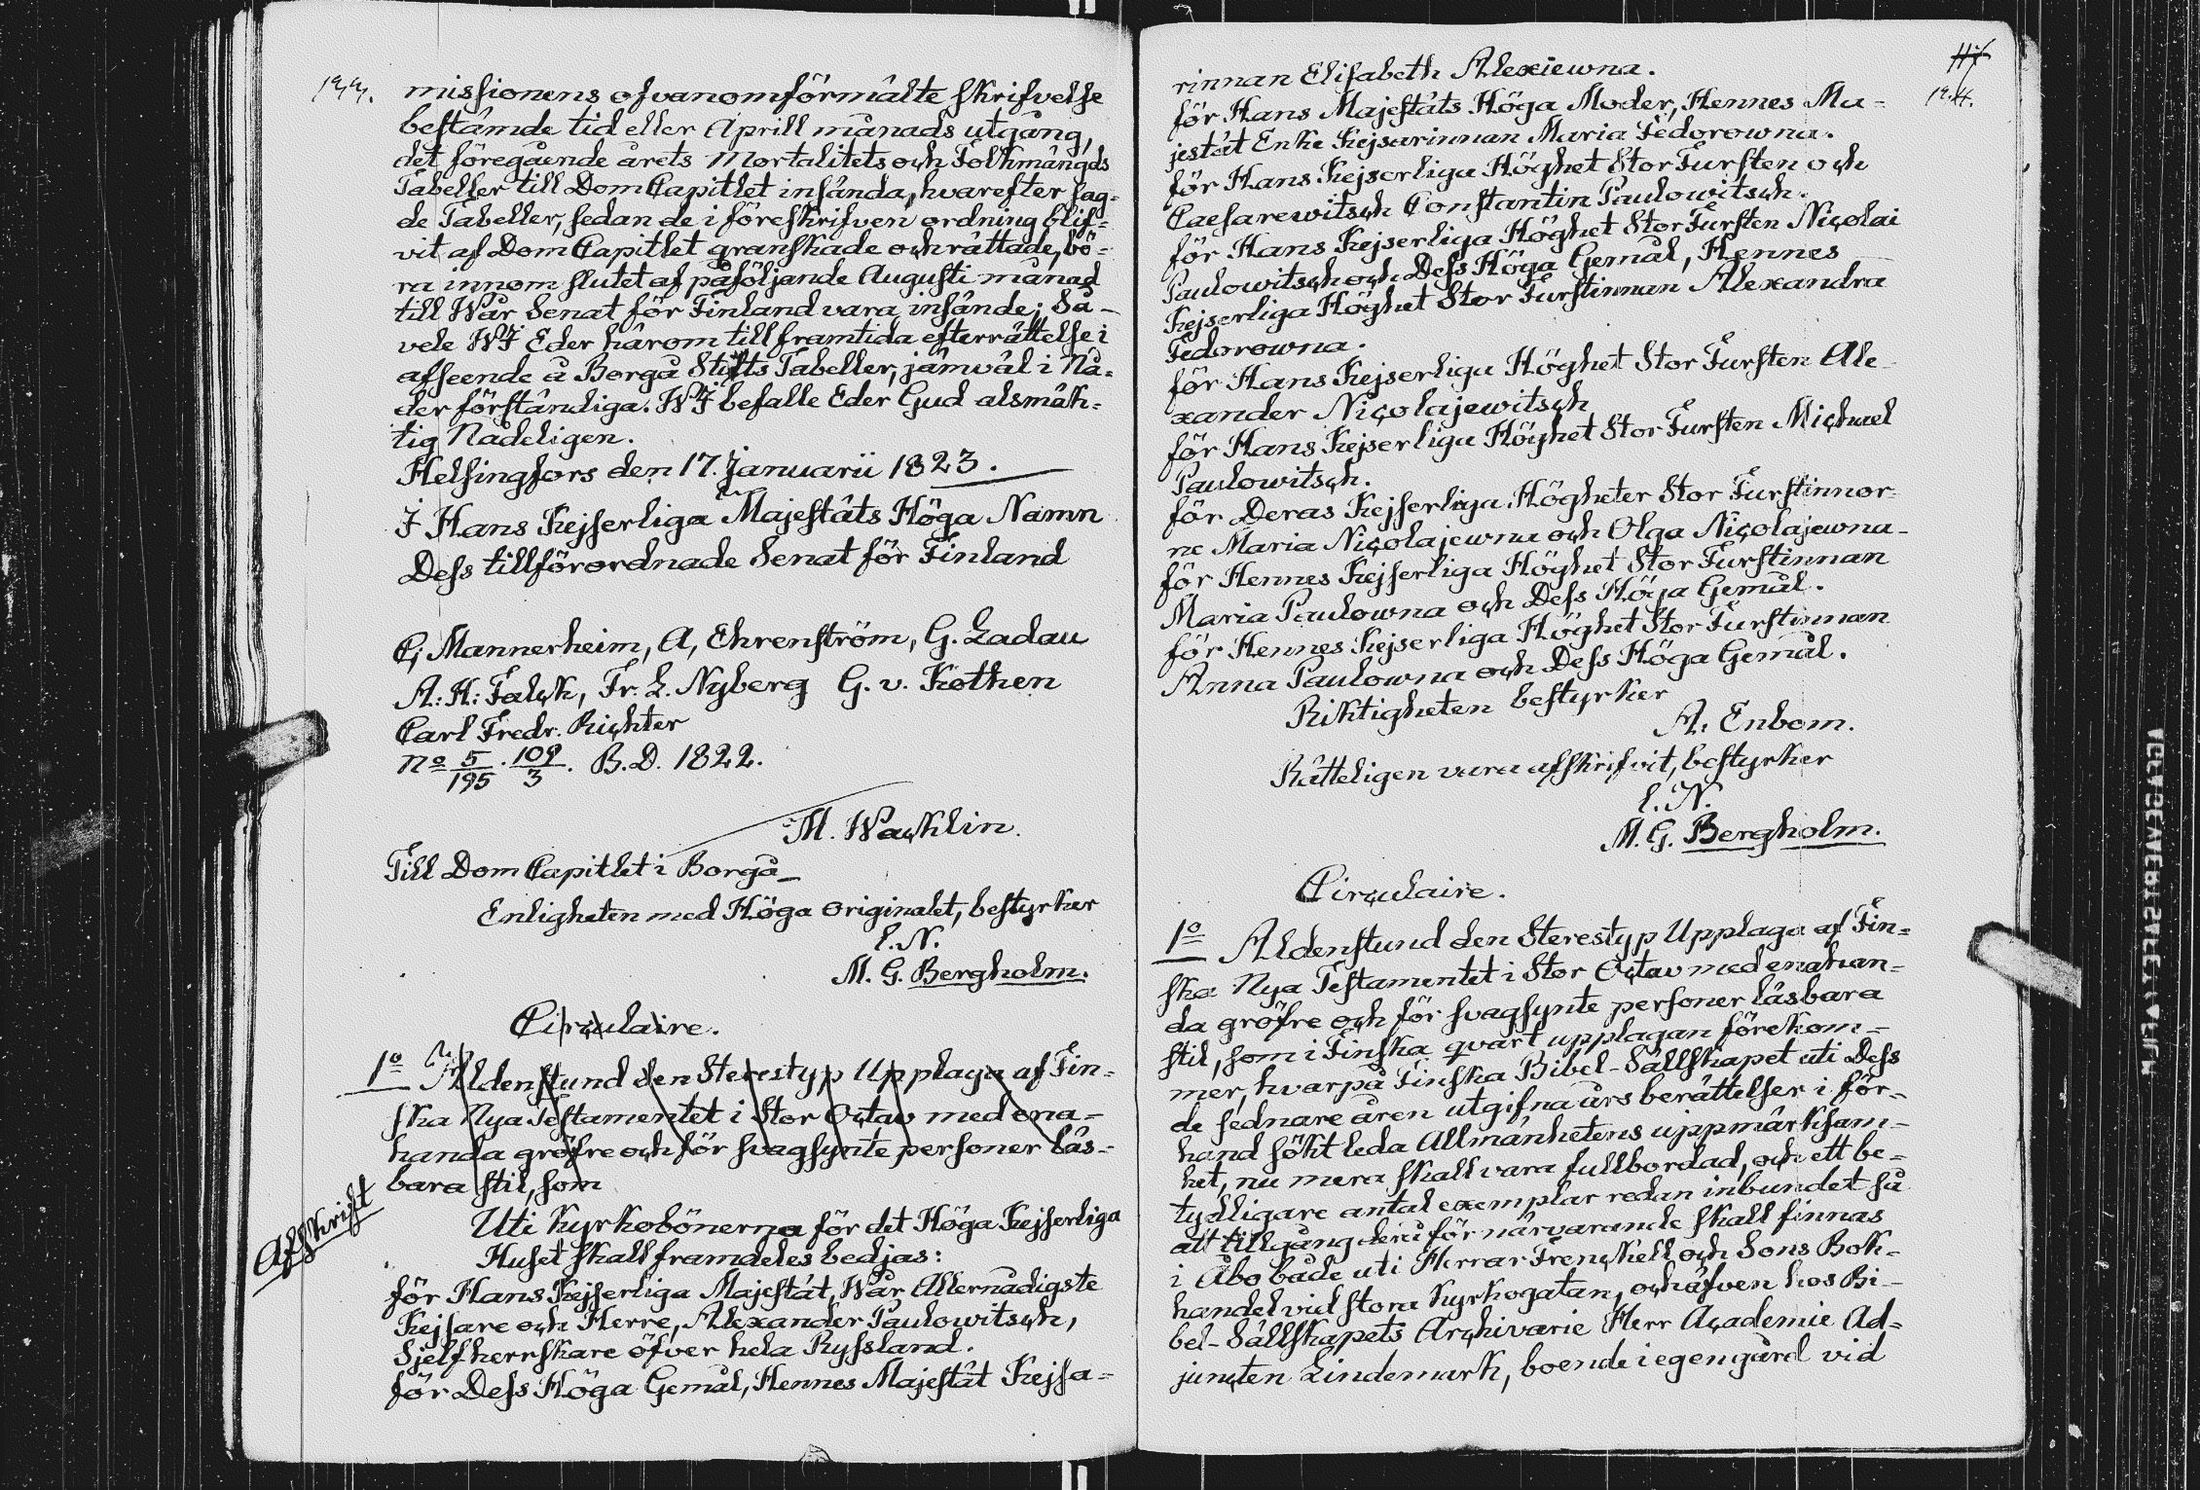 missionens ofvanomförmälte skrifvelse
bestämde tid eller Aprill månads utgång,
det föregående årets Mortalitets och Folkmängds
Tabeller till Dom Capitlet insända, hvarefter sag-
de Tabeller, sedan de i föreskrifven ordning blif-
vit af Dom Capitlet granskade och rättade, bö-
ra innom slutet af påföljande Augusti månad
till Wår Senat för Finland vara insände; Så-
vele WJ Eder härom till framtida efterrättelse i
afseende å Borgå Stifts Tabeller, jämwäl i Nå-
der förständiga. WJ befalle Eder Gud alsmäk-
tig Nådeligen.
Helsingfors den 17. Januarii 1823.
I Hans Kejserliga Majestäts Höga Namn
Dess tillförordnade Senat för Finland
C; Mannerheim, A, Ehrenström, G. Ladau
A: H: Falck, Fr. L. Nyberg G. v. Kothen
Carl Fredr. Richter
No 5/195 . 109/3. B.D. 1822.
M. Wacklin.
Till Dom Capitlet i Borgå
Enligheten med Höga originalet, bestyrker
E.N.
M. G. Bergholm.
Circulaire.
1o Aldenstund den Sterestyp Upplaga af Fin-
ska Nya Testamentet i Stor Octav med ena-
handa gröfre och för svagsynte personer läs-
bara stil, som
Afskrift
Uti Kyrkobönerna för det Höga Kejserliga
Huset skall framdeles bedjas:
för Hans Kejserliga Majestät, Wår Allernådigste
Kejsare och Herre, Alexander Paulowitsch,
Sjelfherrskare öfver hela Ryssland.
för Dess Höga Gemål, Hennes Majestät Kejsa-
rinnan Elisabeth Alexiewna.
för Hans Majestäts Höga Moder, Hennes Ma-
jestät Enke Kejsarinnan Maria Fedorowna.
för Hans Kejserliga Höghet Stor Fursten och
Caesarewitsch Constantin Paulowitsch.
för Hans Kejserliga Höghet Stor Fursten Nicolai
Paulowitsch och Dess Höga Gemål, Hennes
Kejserliga Höghet Stor Furstinnan Alexandra
Fedorowna.
för Hans Kejserliga Höghet Stor Fursten Ale-
xander Nicolajewitsch
för Hans Kejserliga Höghet Stor Fursten Michael
Paulowitsch.
för Deras Kejserliga Högheter Stor Furstinnor-
ne Maria Nicolajewna och Olga Nicolajewna-
för Hennes Kejserliga Höghet Stor Furstinnan
Maria Paulowna och Dess Höga Gemål.
för Hennes Kejserliga Höghet Stor Furstinnan
Anna Paulowna och Dess Höga Gemål.
Riktigheten bestyrker
A. Enbom.
Rätteligen vara afskrifvit, bestyrker
E.N.
M. G. Bergholm.
Circulaire.
1o Aldenstund den Sterestyp Upplaga af Fin-
ska Nya Testamentet i Stor Octav med enahan-
da gröfre och för svagsynte personer läsbara
stil, som i Finska qvart upplagan förekom-
mer, hvarpå Finska Bibel-Sällskapet uti Dess
de sednare åren utgifna års berättelser i för-
hand sökt leda Allmänhetens uppmärksam-
het, nu mera skall vara fullbordad, och ett be-
tydligare antal exemplar redan inbundet så
att tillgång derå för närvarande skall finnas
i Åbo både uti Herrar Frenckell och Sons Bok-
handel vid stora Kyrkogatan, och äfven hos Bi-
bel-Sällskapets Archivarie Herr Academie Ad-
juncten Lindemark, boende i egen gård vid